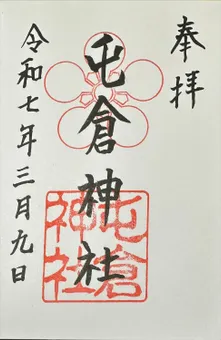 奉拝
屯倉神社
屯倉
神社
令和七年三月九日